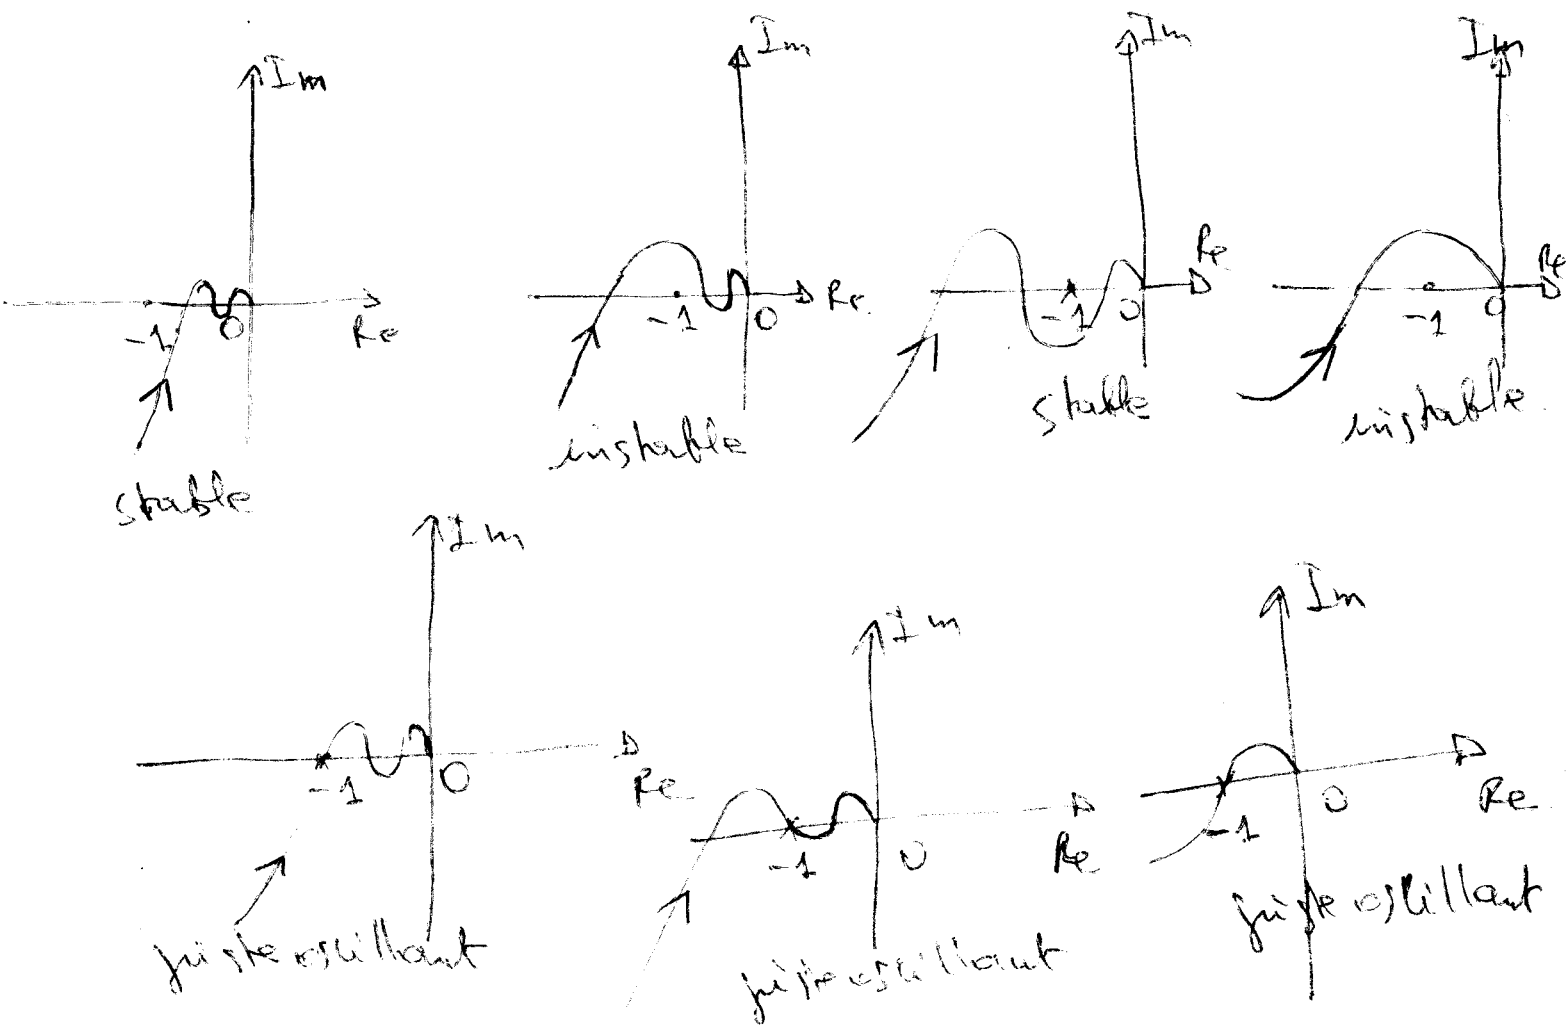 Im
-1
0
Re
stable
Im
-1
0
Re
instable
Im
Re
-1
0
stable
Im
Re
-1
0
instable
Im
-1
0
Re
juste oscillant
Im
-1
0
Re
juste oscillant
Im
-1
0
Re
juste oscillant